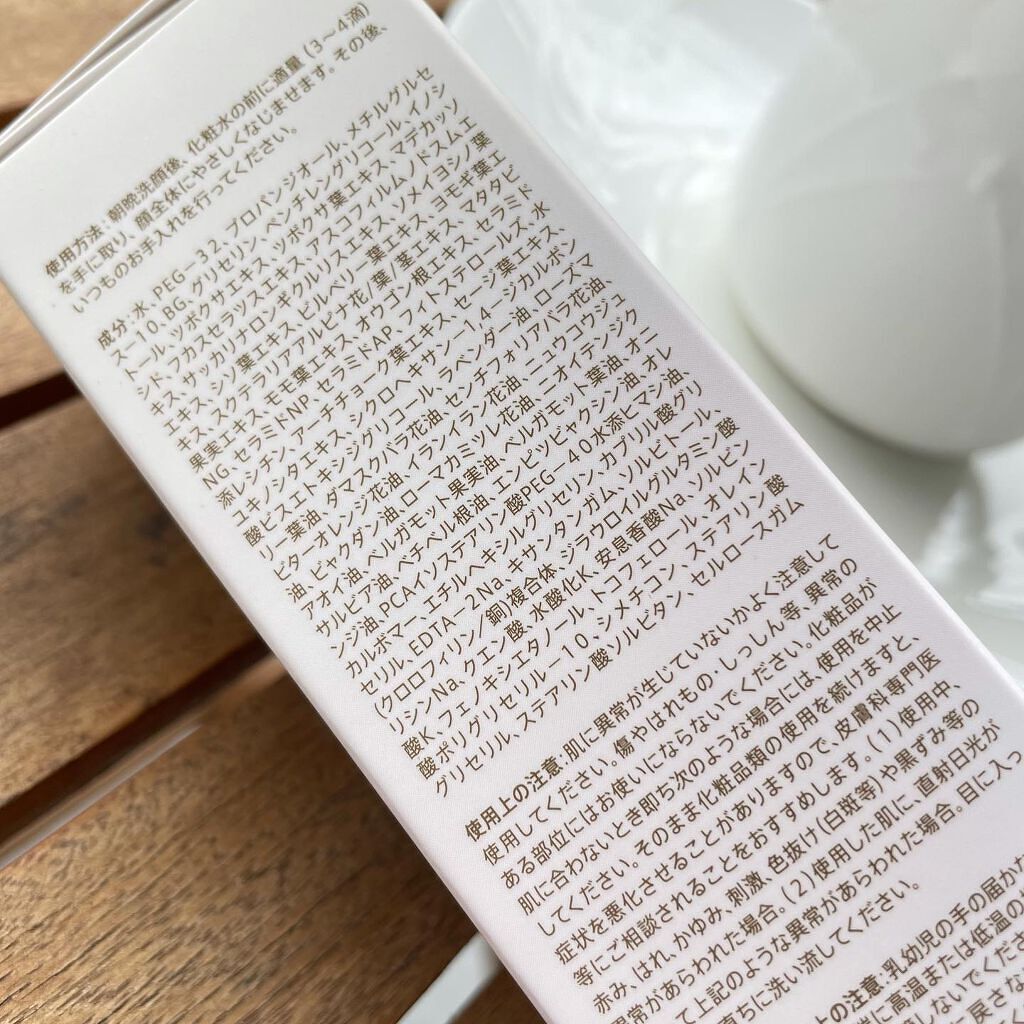 使用方法：朝晩洗顔後、化粧水の前に適量（3〜4滴）
を手に取り、顔全体にやさしくなじませます。その後、
いつものお手入れを行ってください。
成分：水、PEG-32、プロパンジオール、メチルグルセ
ス-10、BG、グリセリン、ペンチレングリコール、イノシ
トール、ツボクサエキス、ツボクサ葉エキス、マデカッソ
シド、フカスセラツスエキス、アスコフィルムノドスムエ
キス、サッカリナロンギクルリスエキス、ソメイヨシノ葉
エキス、シソ葉エキス、ビルベリー葉エキス、ヨモギ葉エ
キス、スクテラリアアルピナ花/葉/茎エキス、マタタビ
果実エキス、モモ葉エキス、オウゴン根エキス、セラミド
NG、セラミドNP、セラミドAP、フィトステロールズ、水
添レシチン、アーチチョーク葉エキス、セージ葉エキス、
ユキノシタエキス、シクロヘキサン-1,4-ジカルボン
酸ビスエトキシジグリコール、ラベンダー油、ローズマ
リー葉油、ダマスクバラ花油、センチフォリアバラ花油、
ビターオレンジ花油、イランイラン花油、ニュウコウジュ
油、ビャクダン油、ローマカミツレ花油、ニオイテンジク
アオイ油、ベルガモット果実油、ベルガモット葉油、オニ
サルビア油、ベチベル根油、エンピツビャクシン油、オレ
ンジ油、PCAイソステアリン酸PEG-40水添ヒマシ油、
カルボマー、エチルヘキシルグリセリン、カプリル酸グリ
セリル、EDTA-2Na、キサンタンガム、ソルビトール、
（クロロフィリン/銅）複合体、ジラウロイルグルタミン酸
リシンNa、クエン酸、水酸化K、安息香酸Na、ソルビン
酸K、フェノキシエタノール、トコフェロール、オレイン
酸ポリグリセリル-10、シメチコン、ステアリン酸
グリセリル、ステアリン酸ソルビタン、セルロースガム
使用上の注意：肌に異常が生じていないかよく注意して
使用してください。傷やはれもの・しっしん等、異常の
ある部位にはお使いにならないでください。化粧品が
肌に合わないとき即ち次のような場合には、使用を中止
してください。そのまま化粧品類の使用を続けますと、
症状を悪化させることがありますので、皮膚科専門医
等にご相談されることをおすすめします。（1）使用中、
赤み、はれ、かゆみ、刺激、色抜け（白斑等）や黒ずみ等の
異常があらわれた場合。（2）使用した肌に、直射日光が
て上記のような異常があらわれた場合。目に入っ
直ちに洗い流してください。
上の注意：乳幼児の手の届かな
端に高温または低温の